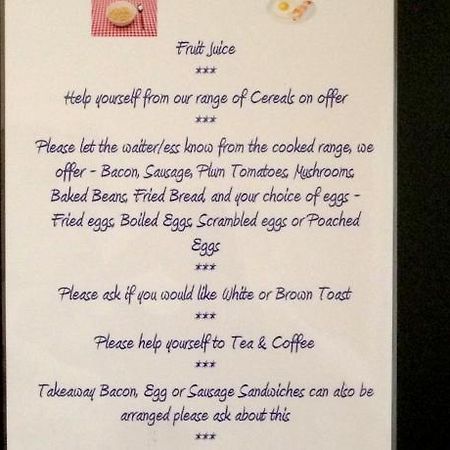 Fruit Juice
***
Help yourself from our range of Cereals on offer
***
Please let the waiter/ess know from the cooked range, we
offer - Bacon, Sausage, Plum Tomatoes, Mushrooms,
Baked Beans, Fried Bread, and your choice of eggs -
Fried eggs, Boiled Eggs, Scrambled eggs or Poached
Eggs
***
Please ask if you would like White or Brown Toast
***
Please help yourself to Tea & Coffee
***
Takeaway Bacon, Egg or Sausage Sandwiches can also be
arranged please ask about this
***